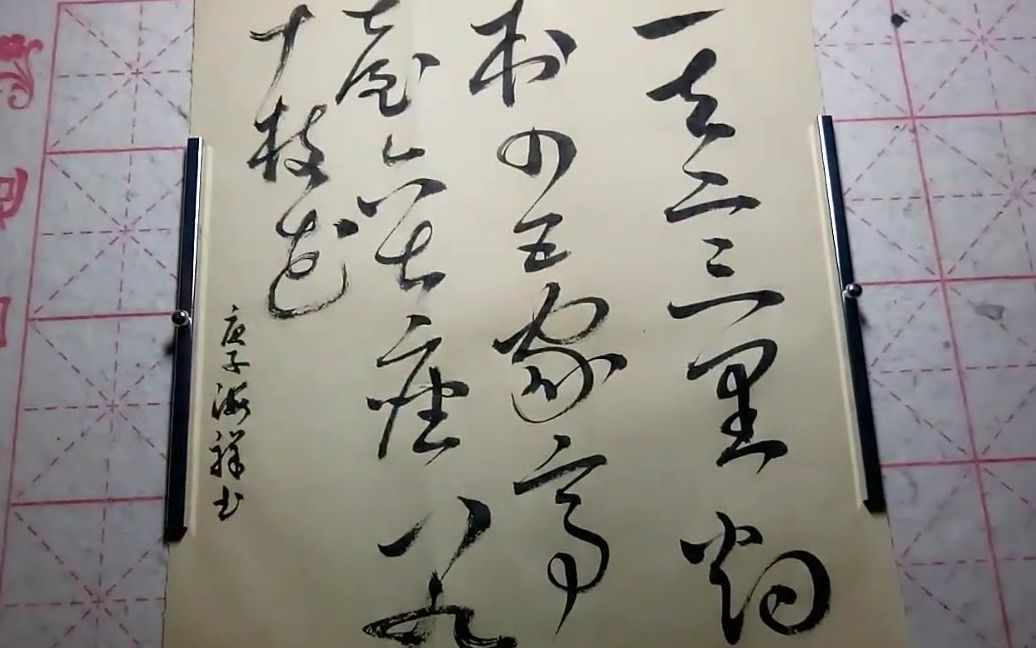 一去二三里烟
村四五家亭
臺六七座八九
十枝花
庚子海祥书